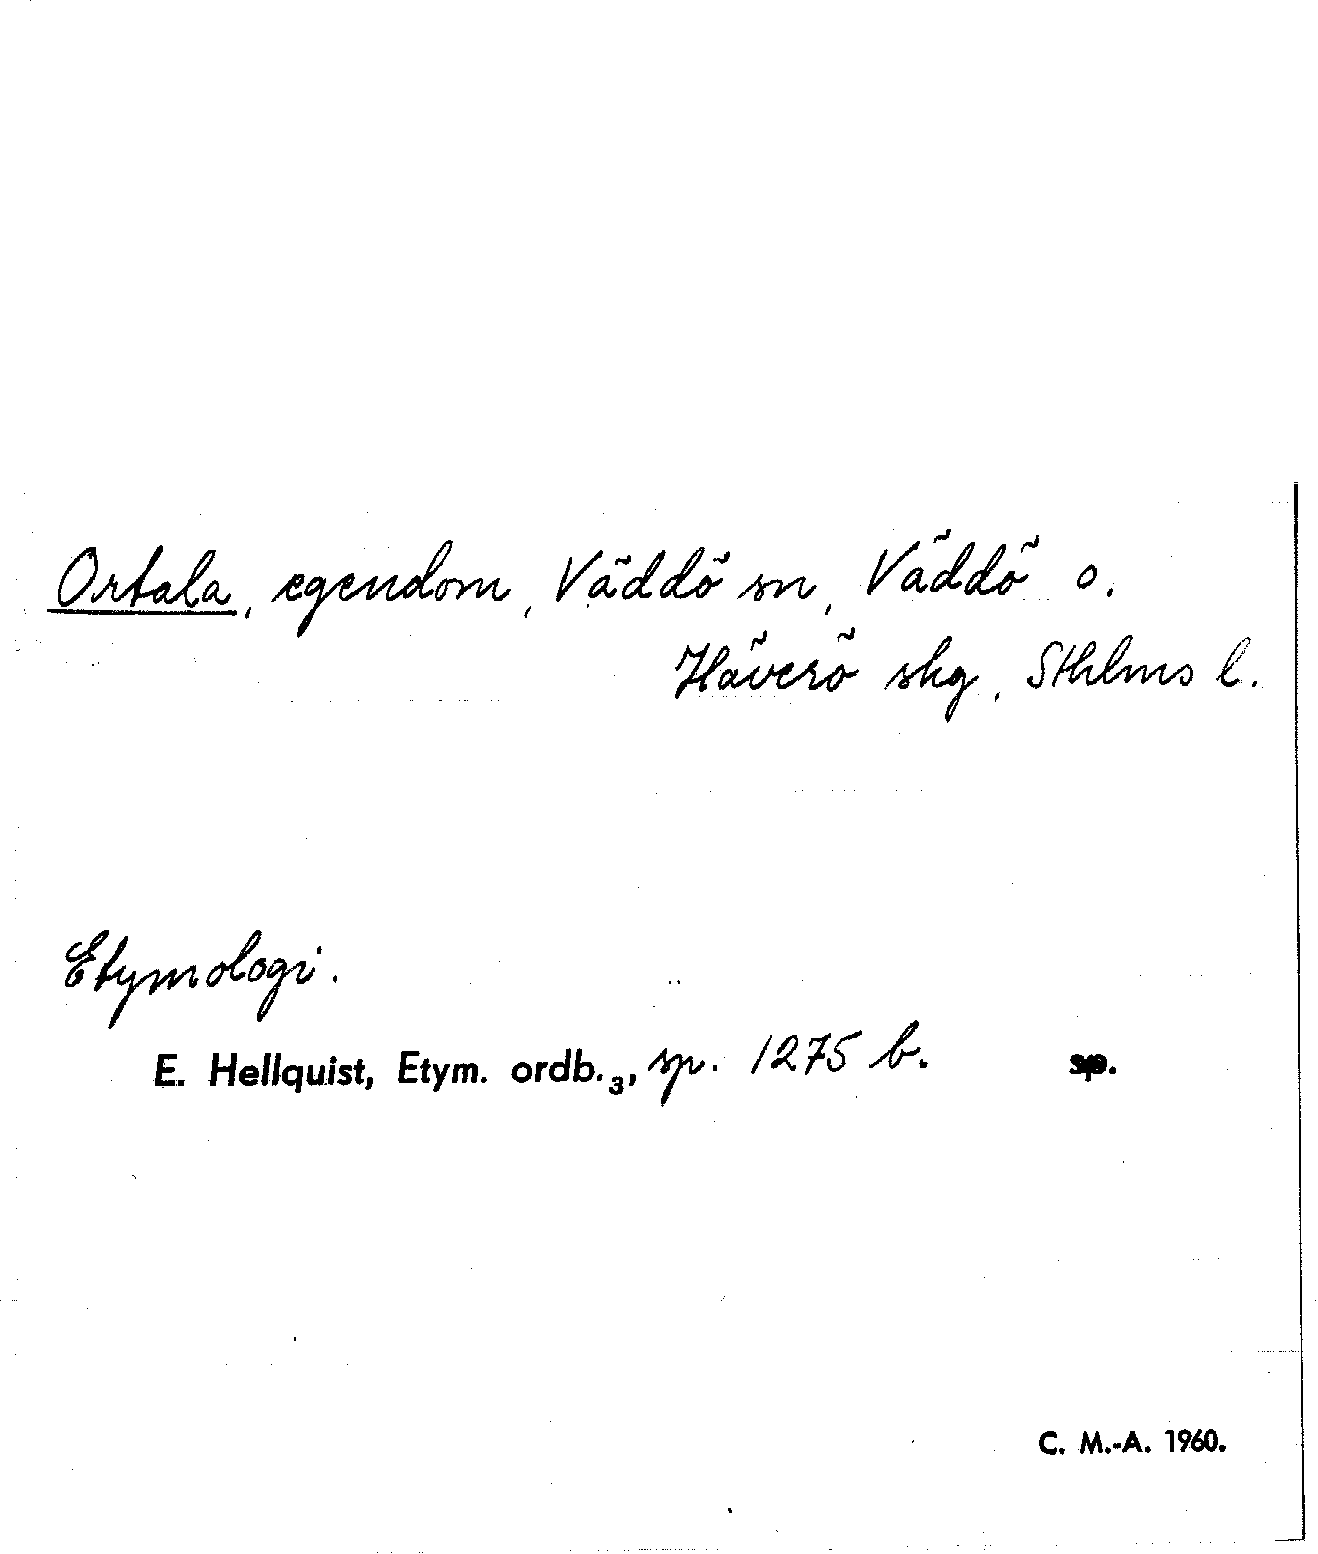 Ortala, egendom, Väddö sn, Väddö o.
Häverö skg, Sthlms l.
Etymologi.
E. Hellquist, Etym. ordb.₃, sp. 1275 b. sp.
C. M.-A. 1960.